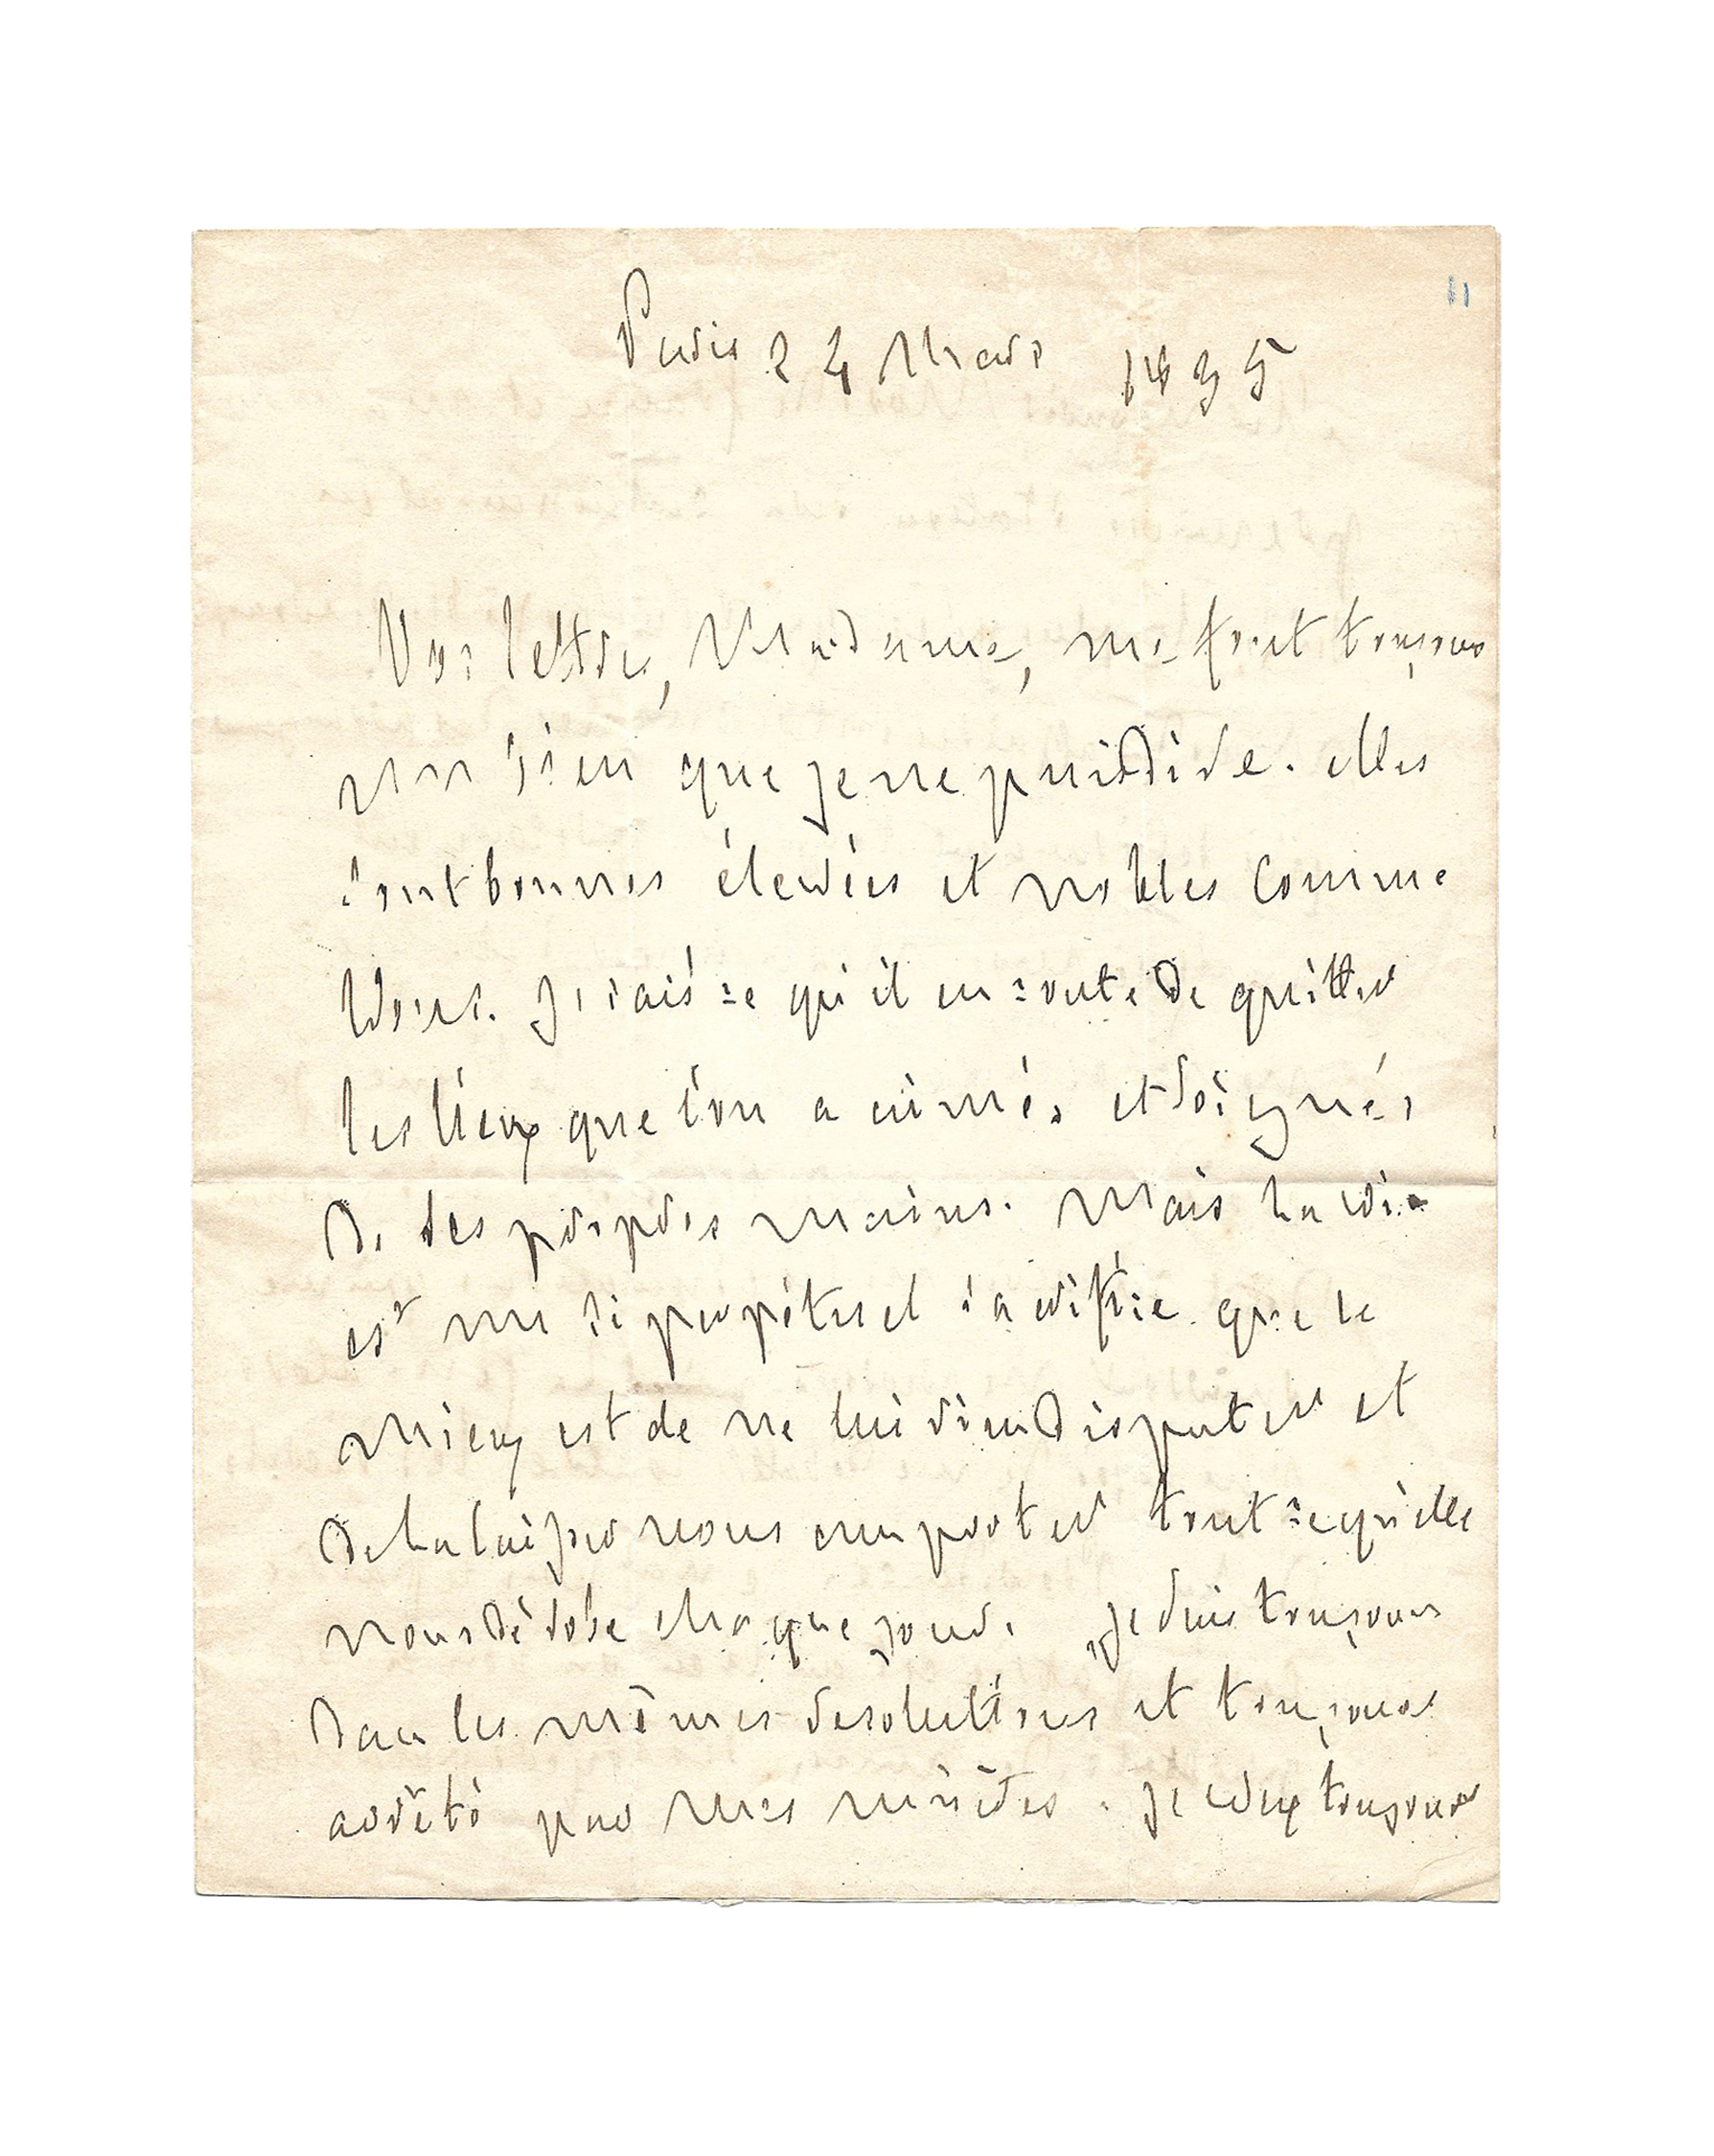 11
Paris 24 Mars 1835
Vos lettres, Madame, me font toujours
un bien que je ne puis dire. elles
sont bonnes élevées et nobles comme
vous. Je sais ce qu'il en coute de quitter
les lieux que l'on a aimés et soignés
de ses propres mains. Mais la vie
est un si perpétuel sacrifice que le
mieux est de ne lui rien disputer et
de la laisser nous emporter tout ce qu'elle
nous dérobe chaque jour. je suis toujours
dans les mêmes résolutions et toujours
arrêté par mes misères. je veux toujours